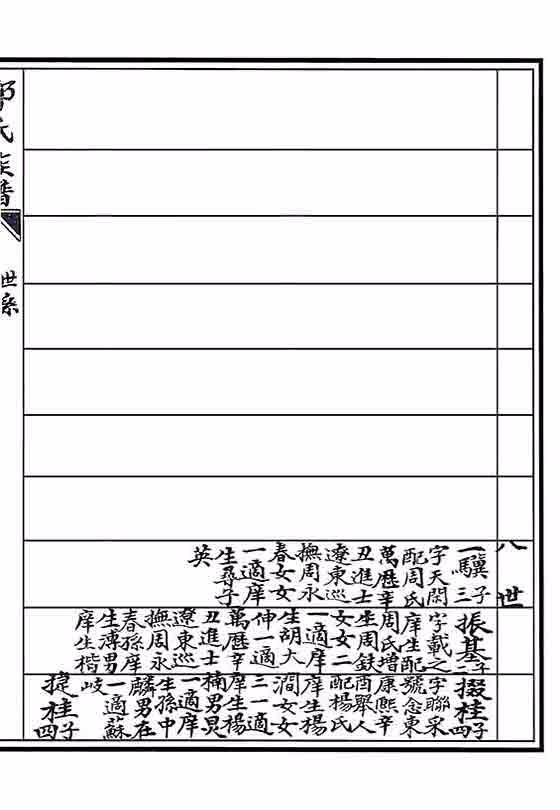 八世
一驥 三子
字天閑
配周氏
萬歷辛
丑進士
遼東巡
撫周永
春女女
一適庠
生尋子
英
振基 子
字載之
庠生配
周氏增
生周鉄
女女二
一適庠
生胡大
伸一適
萬歷辛
丑進士
遼東巡
撫周永
春孫庠
生漙男
庠生楷
掇桂 四子
字聯采
號念東
康熙辛
酉舉人
配楊氏
庠生楊
澗女女
三一適
庠生楊
楠男炅
一適庠
生孫中
麟男在
一適蘇
岐
㨗桂 四子
氏族譜
世系